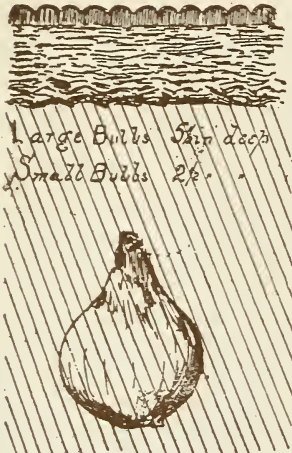 Large Bulbs 5½in deep
Small Bulbs 2½ " "